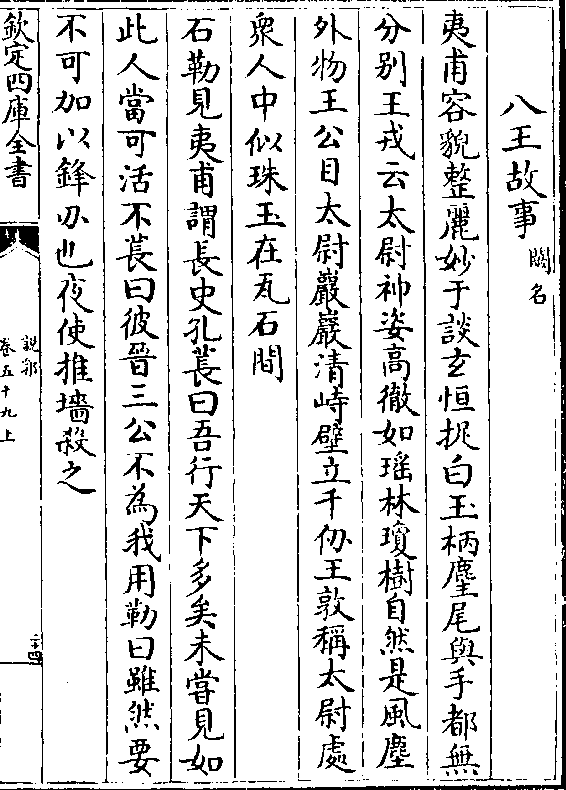 八王故事 闕名
夷甫容貌整麗妙于談玄恒捉白玉柄麈尾與手都無
分别王戎云太尉神姿高徹如瑶林瓊樹自然是風塵
外物王公目太尉巖巖清峙壁立千仞王敦稱太尉處
衆人中似珠玉在瓦石間
石勒見夷甫謂長史孔萇曰吾行天下多矣未嘗見如
此人當可活不萇曰彼晉三公不為我用勒曰雖然要
不可加以鋒刃也夜使推墻殺之
欽定四庫全書
說郛
卷五十九上
二十四